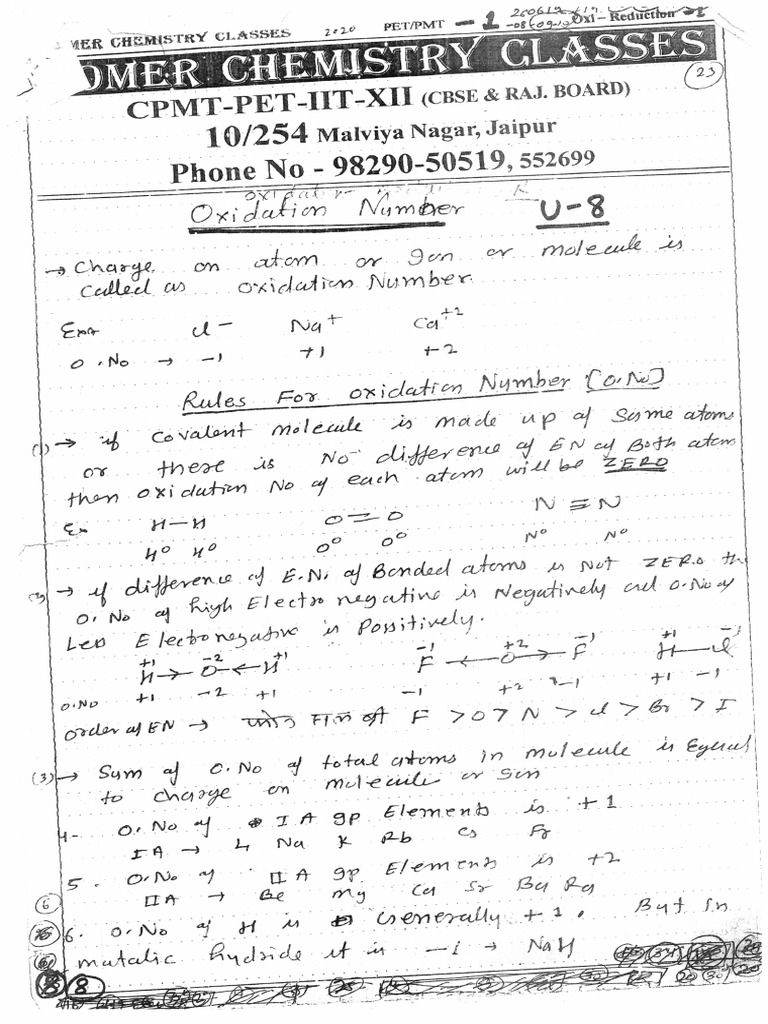 OMER CHEMISTRY CLASSES 2020 PET/PMT -1 Oxi-Reduction -1
OMER CHEMISTRY CLASSES
23
CPMT-PET-IIT-XII (CBSE & RAJ. BOARD)
10/254 Malviya Nagar, Jaipur
Phone No - 98290-50519, 552699
Oxidation Number U-8
→ Charge on atom or Ion or molecule is
called as oxidation Number.
Exa Cl⁻ Na⁺ Ca⁺²
O.No → -1 +1 +2
Rules For oxidation Number [O.No]
(1) → if covalent molecule is made up of Same atoms
or there is No difference of EN of Both atom
then oxidation No of each atom will be ZERO
Ex H-H O=O N≡N
H⁰ H⁰ O⁰ O⁰ N⁰ N⁰
(2) → if difference of E.N. of Bonded atoms is Not ZERO the
O.No of high Electronegative is Negatively and O.No of
Less Electronegative is Possitively.
+1 -2 +1 -1 +2 -1 +1 -1
H→O←H F←O→F H-Cl
O.NO +1 -2 +1 -1 +2 -1 +1 -1
order of EN → F > O > N > Cl > Br > I
(3) → Sum of O.No of total atoms in molecule is Equal
to charge on molecule or Ion
4- O.No of IA gp Elements is +1
IA → Li Na K Rb Cs Fr
5. O.No of IIA gp Elements is +2
IIA → Be Mg Ca Sr Ba Ra
6
6. O.No of H is Generally +1. But In
matalic hydride it is -1 → NaH
8 8